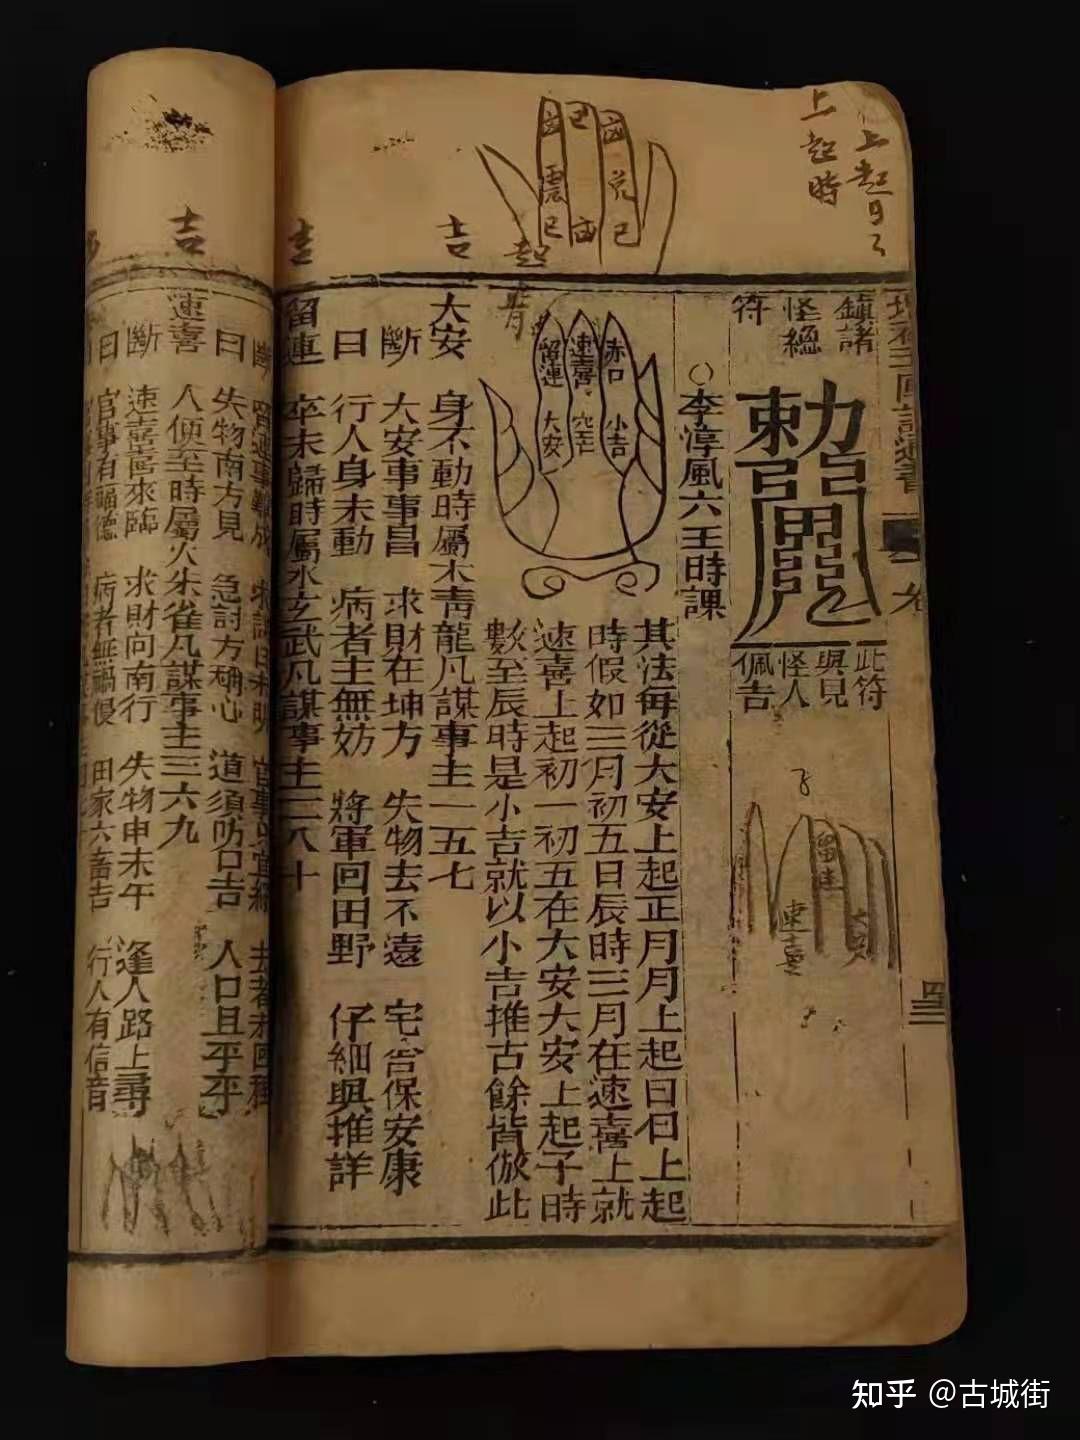 上起時
上起日
鎮諸
怪總
符
此符
與見
怪人
佩吉
留連
速喜
大安
四三
○李淳風六壬時課
赤口 小吉
速喜 空亡
留連 大安
震
兌
其法每從大安上起正月月上起日日上起
時假如三月初五日辰時三月在速喜上就
速喜上起初一初五在大安大安上起子時
數至辰時是小吉就以小吉推古餘皆倣此
吉
大安 身不動時屬木青龍凡謀事主一五七
斷 大安事事昌 求財在坤方 失物去不遠 宅舍保安康
曰 行人身未動 病者主無妨 將軍回田野 仔細與推詳
吉
留連 卒未歸時屬水玄武凡謀事主二八十
斷 留連事難成 求謀日未明 官事只宜緩 去者未回程
曰 失物南方見 急討方稱心 道須防口舌 人口且平平
吉
速喜 人便至時屬火朱雀凡謀事主三六九
斷 速喜喜來臨 求財向南行 失物申未午 逢人路上尋
曰 官事有福德 病者無禍侵 田家六畜吉 行人有信音
知乎 @古城街